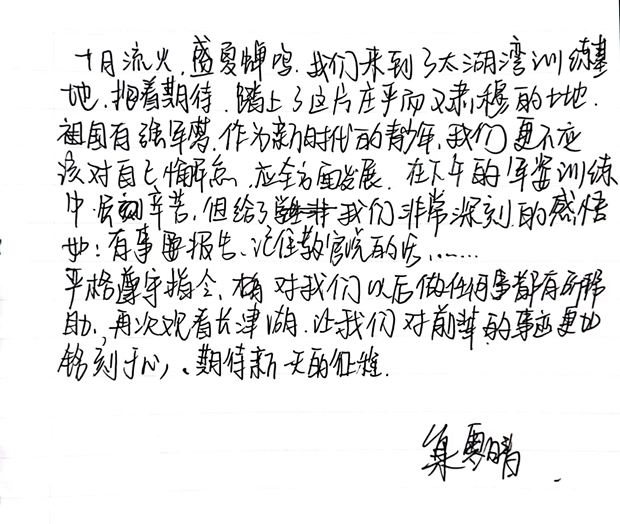 十月流火,盛夏蝉鸣.我们来到了太湖湾训练基
地.抱着期待.踏上了这片庄严而又肃穆的土地.
祖国有强军梦,作为新时代的青少年,我们更不应
该对自己懈怠,应全方面发展.在下午的军姿训练
中虽辛苦,但给了我们非常深刻的感悟
如:有事要报告、记住教官说的话......
严格遵守指令,对我们以后做任何事都有所帮
助,再次观看长津湖,让我们对前辈的事迹更加
铭刻于心,期待新一天的征程.
夏晴